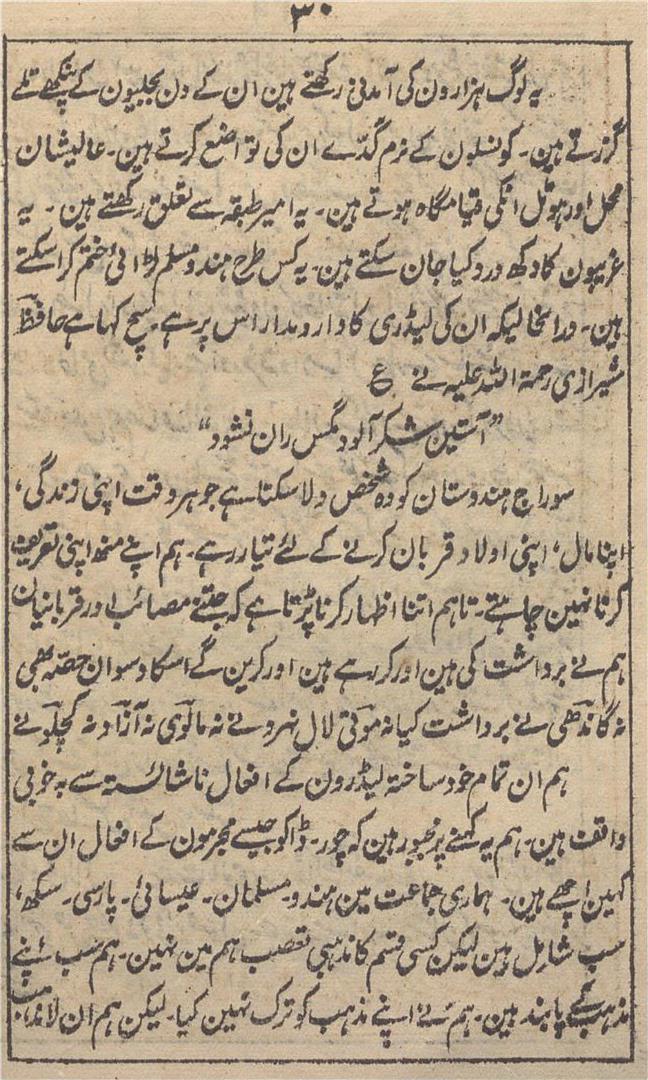 ۳۰
یہ لوگ ہزارون کی آمدنی رکھتے ہین ان کے دن بجلیون کے پنکھے تلے
گزرتے ہین۔ کونسلون کے نرم گدّے ان کی تواضع کرتے ہین۔ عالیشان
محل اور ہوٹل انکی قیامگاہ ہوتے ہین۔ یہ امیر طبقہ سے تعلق رکھتے ہین۔ یہ
غریبون کا دکھ درد کیا جان سکتے ہین۔ یہ کس طرح ہندو مسلم لڑائی ختم کرا سکتے
ہین۔ درانحالیکہ ان کی لیڈری کا دارومدار اس پر ہے۔ سچ کہا ہے حافظؔ
شیرازی رحمۃ اللہ علیہ نے ع
”آستین شکر آلود مگس ران نشود“
سوراج ہندوستان کو وہ شخص دلا سکتا ہے جو ہر وقت اپنی زندگی،
اپنا مال، اپنی اولاد قربان کرنے کے لئے تیار رہے۔ ہم اپنے منھ اپنی تعریف
کرنا نہین چاہتے۔ تاہم اتنا اظہار کرنا پڑتا ہے کہ جتنے مصائب اور قربانیان
ہم نے برداشت کی ہین اور کر رہے ہین اور کرین گے اسکا دسوان حصّہ بھی
نہ گاندھی نے برداشت کیا نہ موتی لال نہرو نے نہ مالوی نہ آزاد نہ کچلو نے
ہم ان تمام خود ساختہ لیڈرون کے افعال ناشائستہ سے بہ خوبی
واقف ہین۔ ہم یہ کہنے پر مجبور ہین کہ چور۔ ڈاکو جیسے مجرمون کے افعال ان سے
کہین اچھے ہین۔ ہماری جماعت مین ہندو۔ مسلمان۔ عیسائی۔ پارسی۔ سکھ،
سب شامل ہین لیکن کسی قسم کا مذہبی تعصب ہم مین نہین۔ ہم سب اپنے
مذہب کے پابند ہین۔ ہم نے اپنے مذہب کو ترک نہین کیا۔ لیکن ہم ان لامذہب